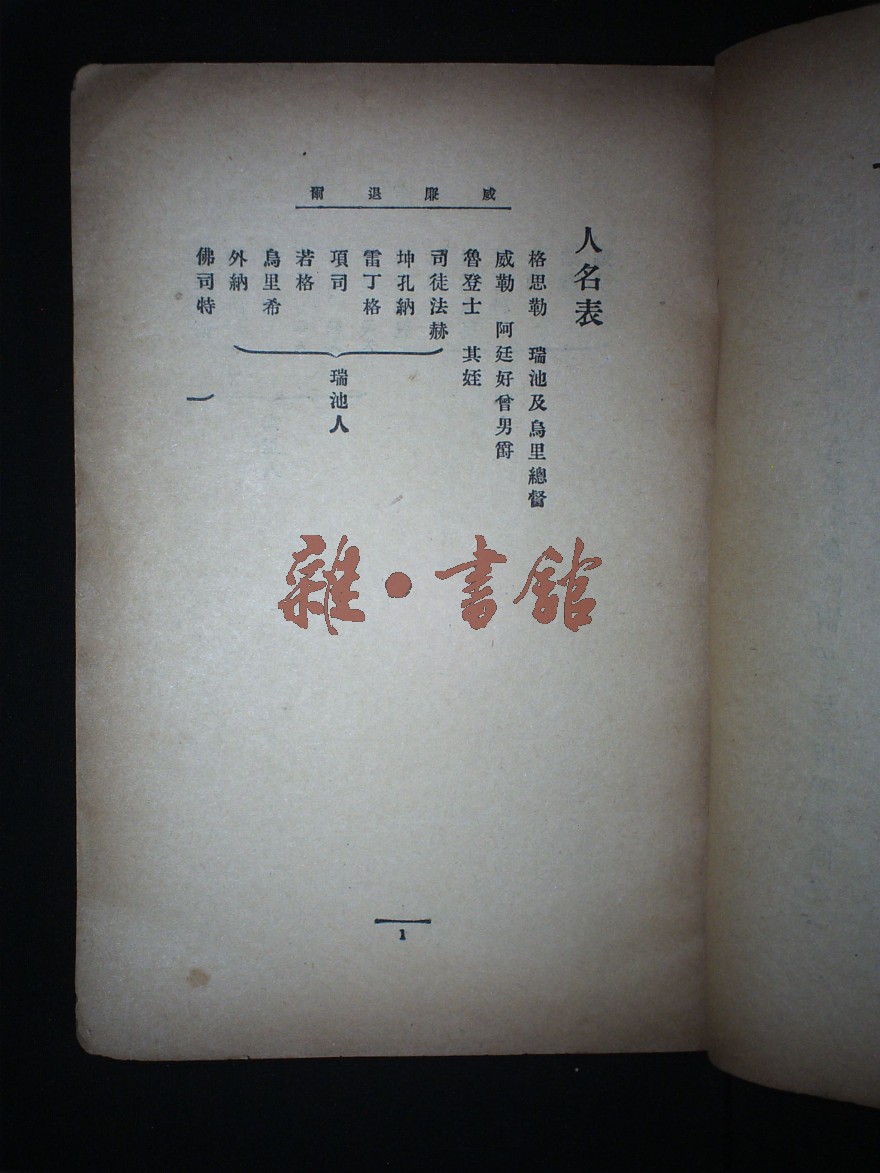 威廉退爾
人名表
格思勒 瑞池及烏里總督
威勒 阿廷好曾男爵
魯登士 其姪
司徒法赫
坤孔納
雷丁格
項司
若格
烏里希
外納
瑞池人
佛司特
1
雜·書館